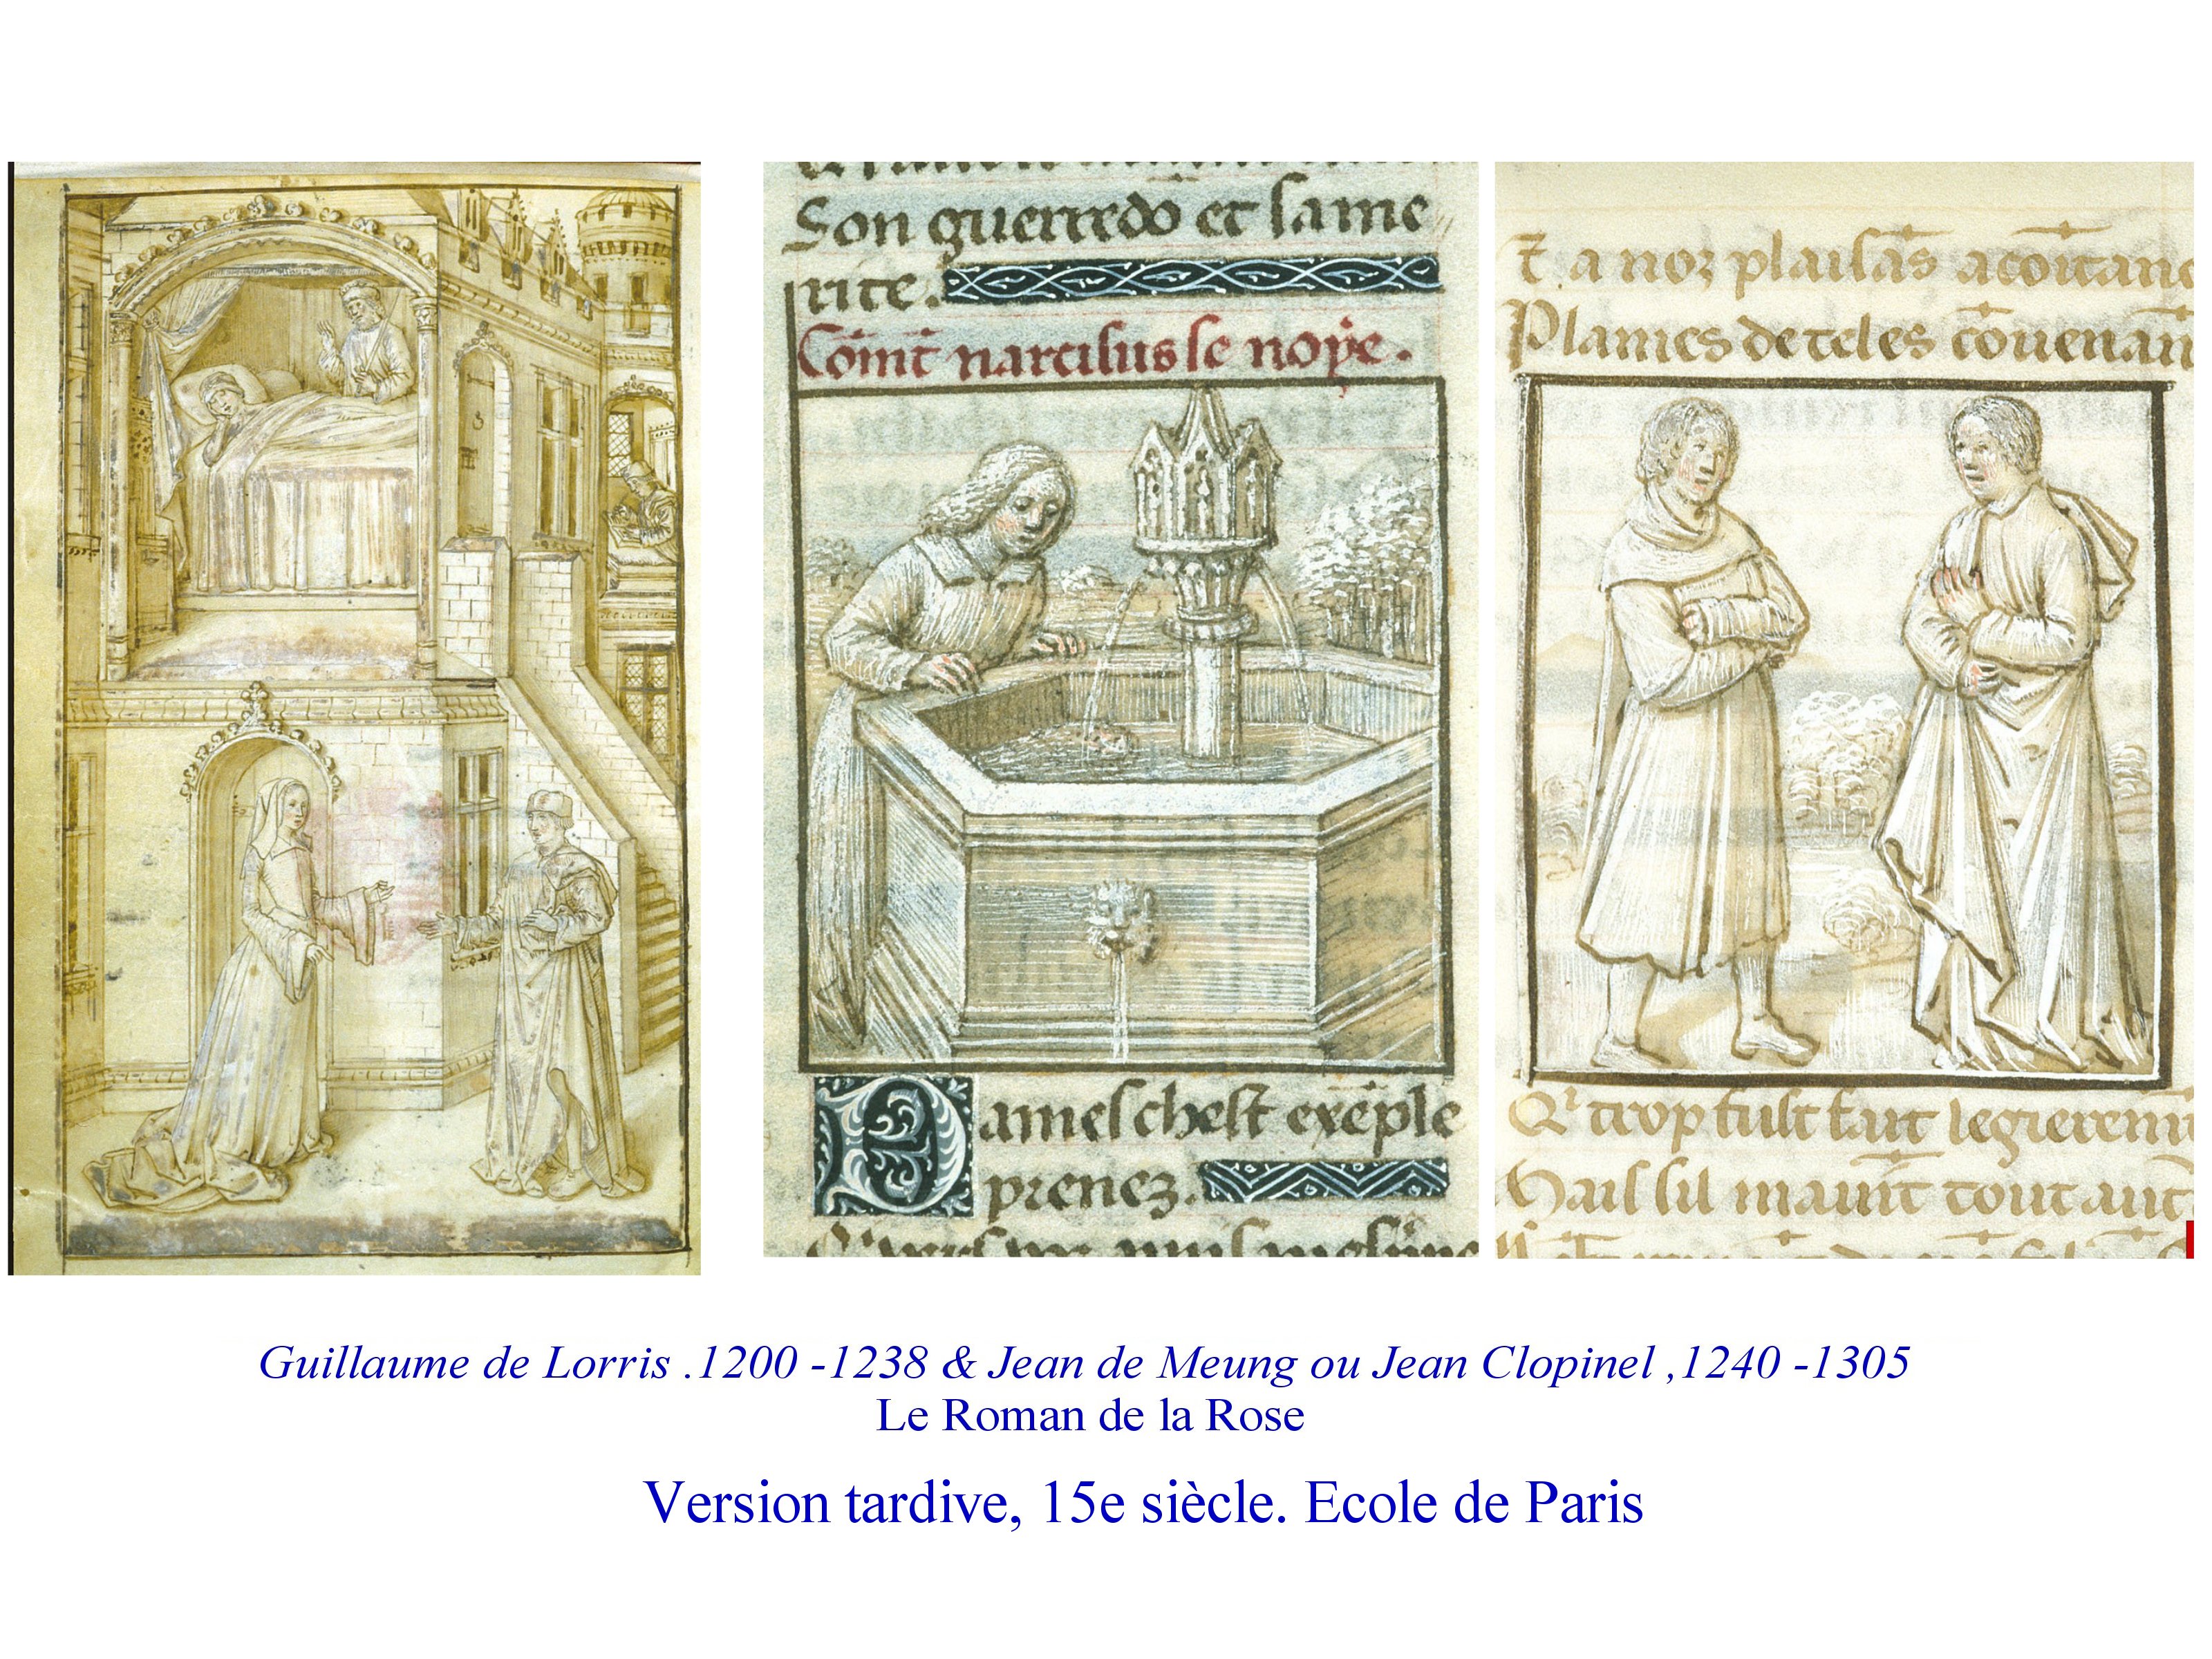 Son guerredō et sa me
rite.
Cōmt̄ narcisus se noye.
Dames chest exēple
prenez.
t a noz plaisās acoītanc
Plaines de teles cōuenan
Q' trop tust fait legierem
Mais sil maint tout aut
Guillaume de Lorris .1200 -1238 & Jean de Meung ou Jean Clopinel ,1240 -1305
Le Roman de la Rose
Version tardive, 15e siècle. Ecole de Paris